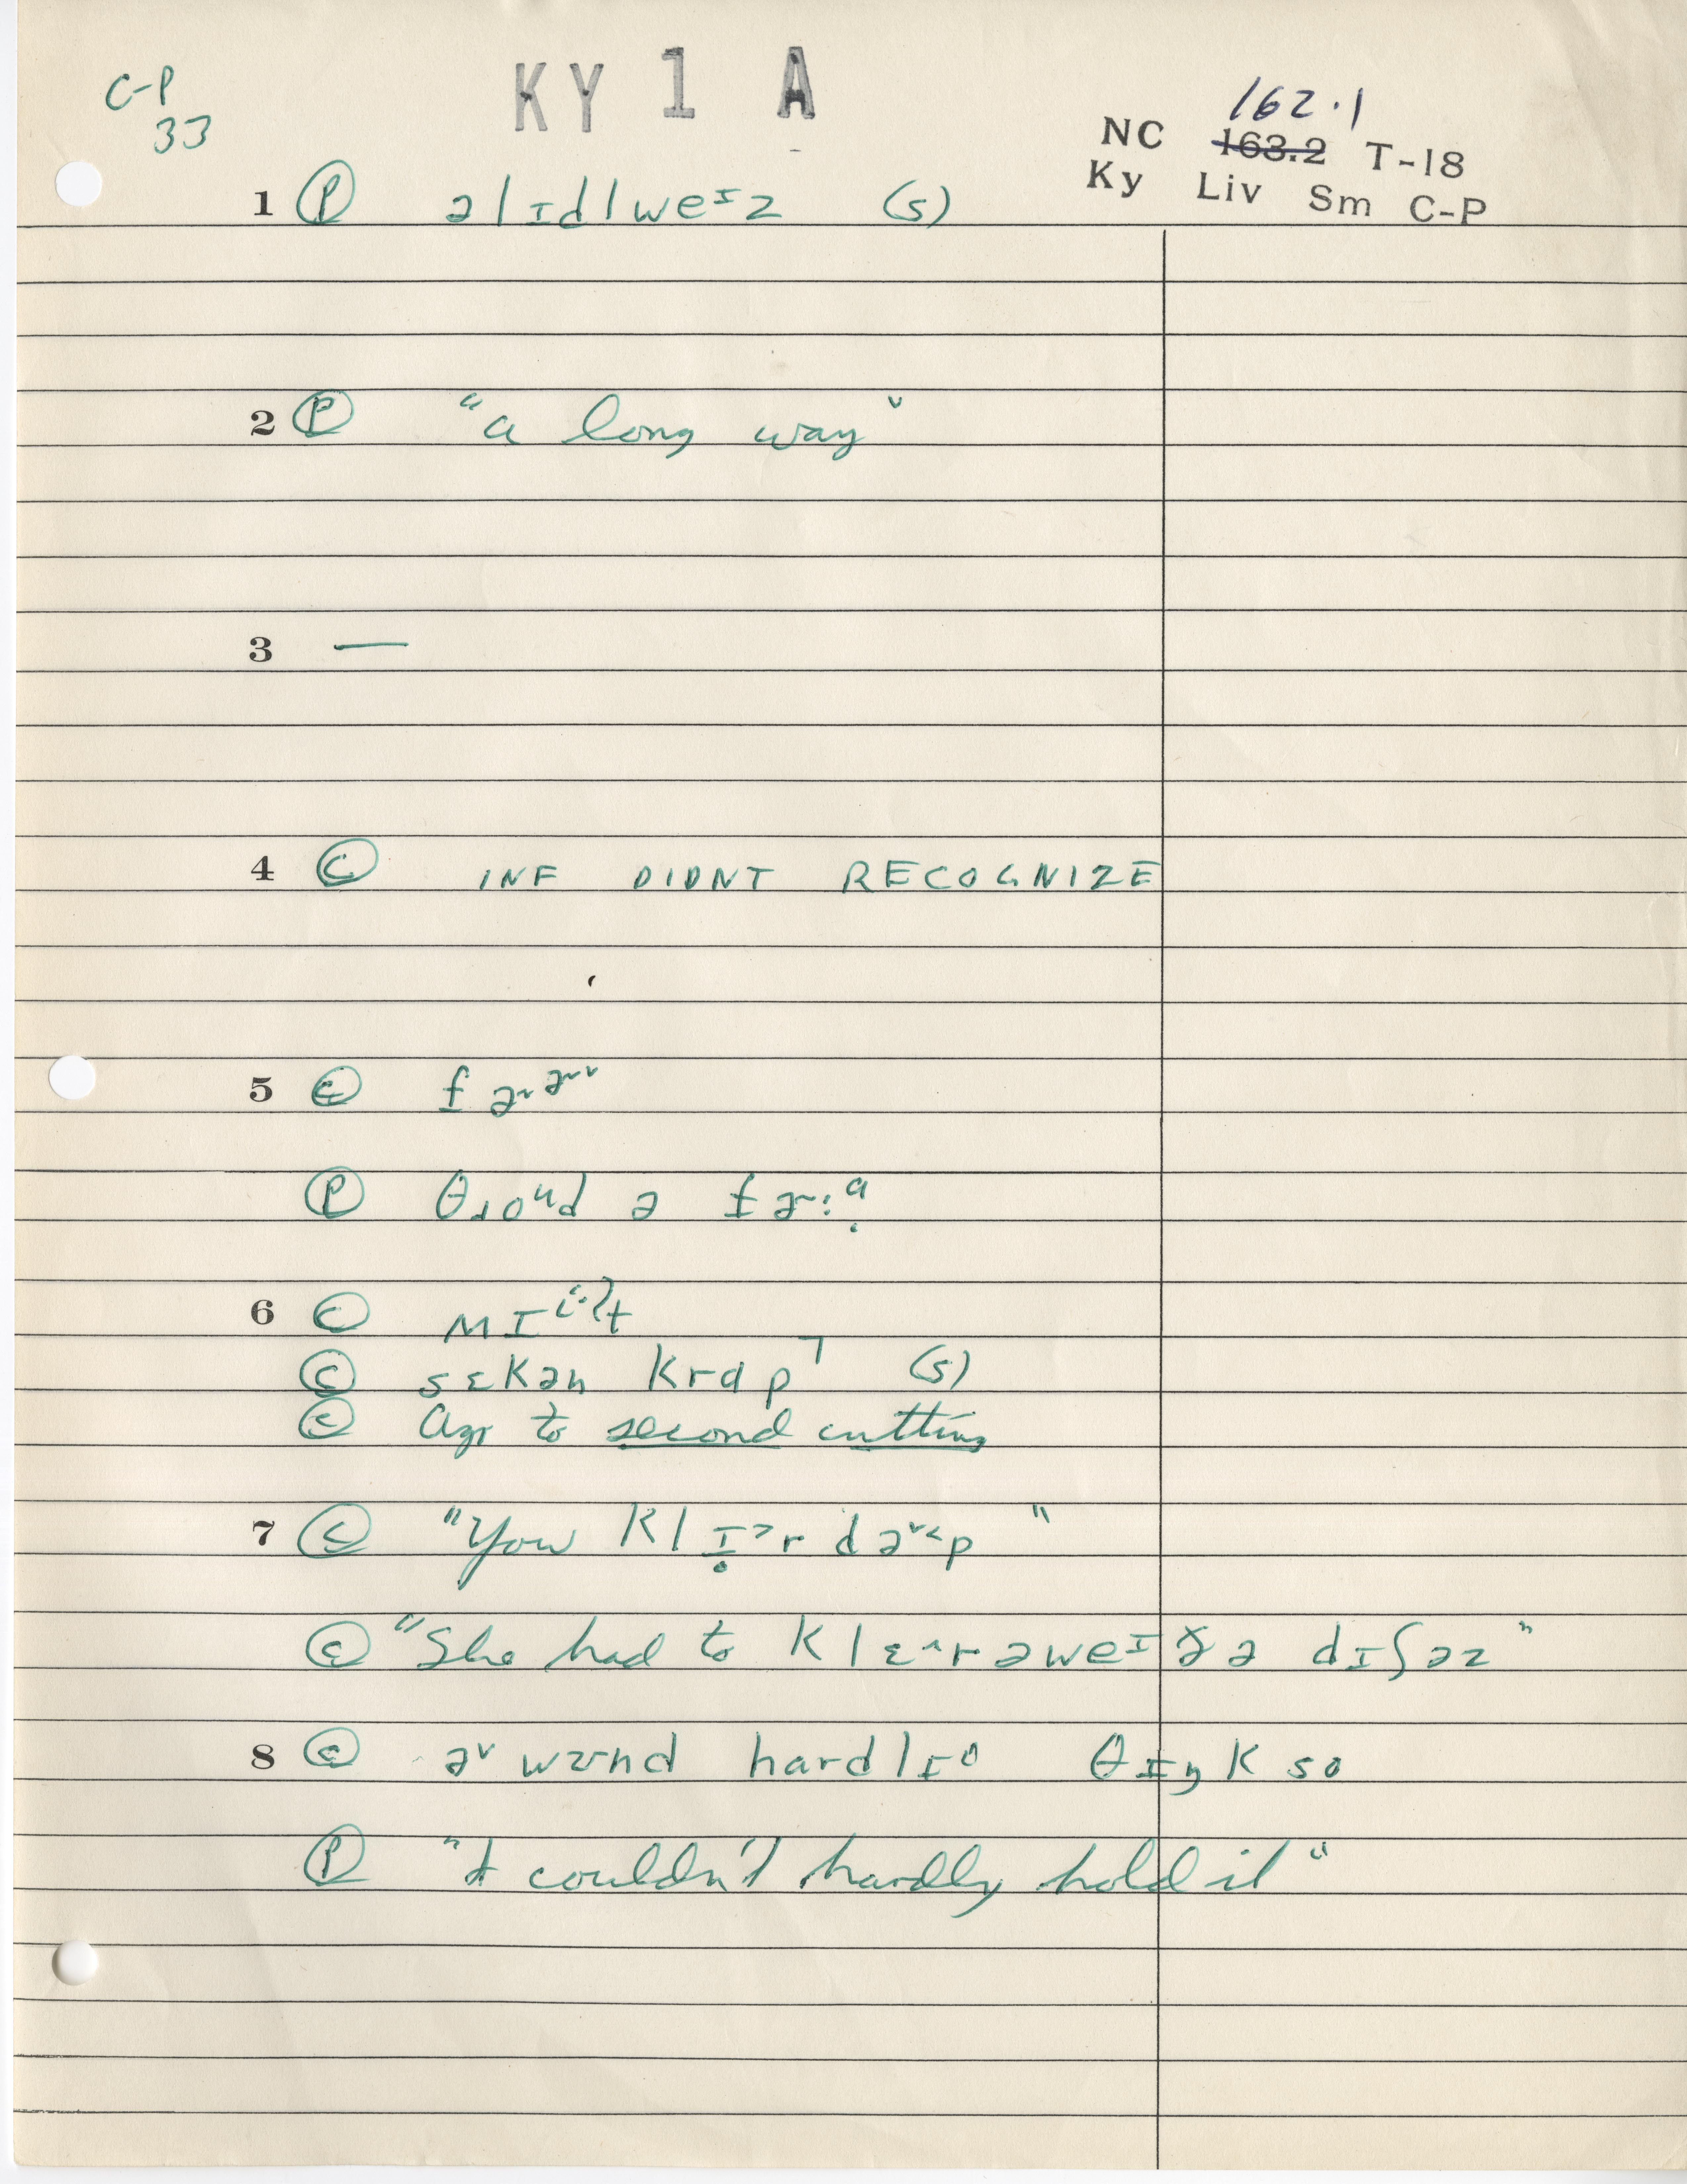 C-P
33
KY 1 A
162.1
NC 163.2 T-18
Ky Liv Sm C-P
1 Ⓟ ə lɪdl weᶦz (s)
2 Ⓟ "a long way"
3 —
4 Ⓒ INF DIDNT RECOGNIZE
5 Ⓒ
Ⓟ θɹoᵘd ə
6 Ⓒ
Ⓒ sɛkən krɑp ̚ (s)
Ⓒ Agr to second cutting
7 Ⓒ "You
Ⓒ "She had to klɛ^r əweᶦ ðə dɪʃəz"
8 Ⓒ hardlɪ θɪŋk so
Ⓟ "I couldn't hardly hold it"